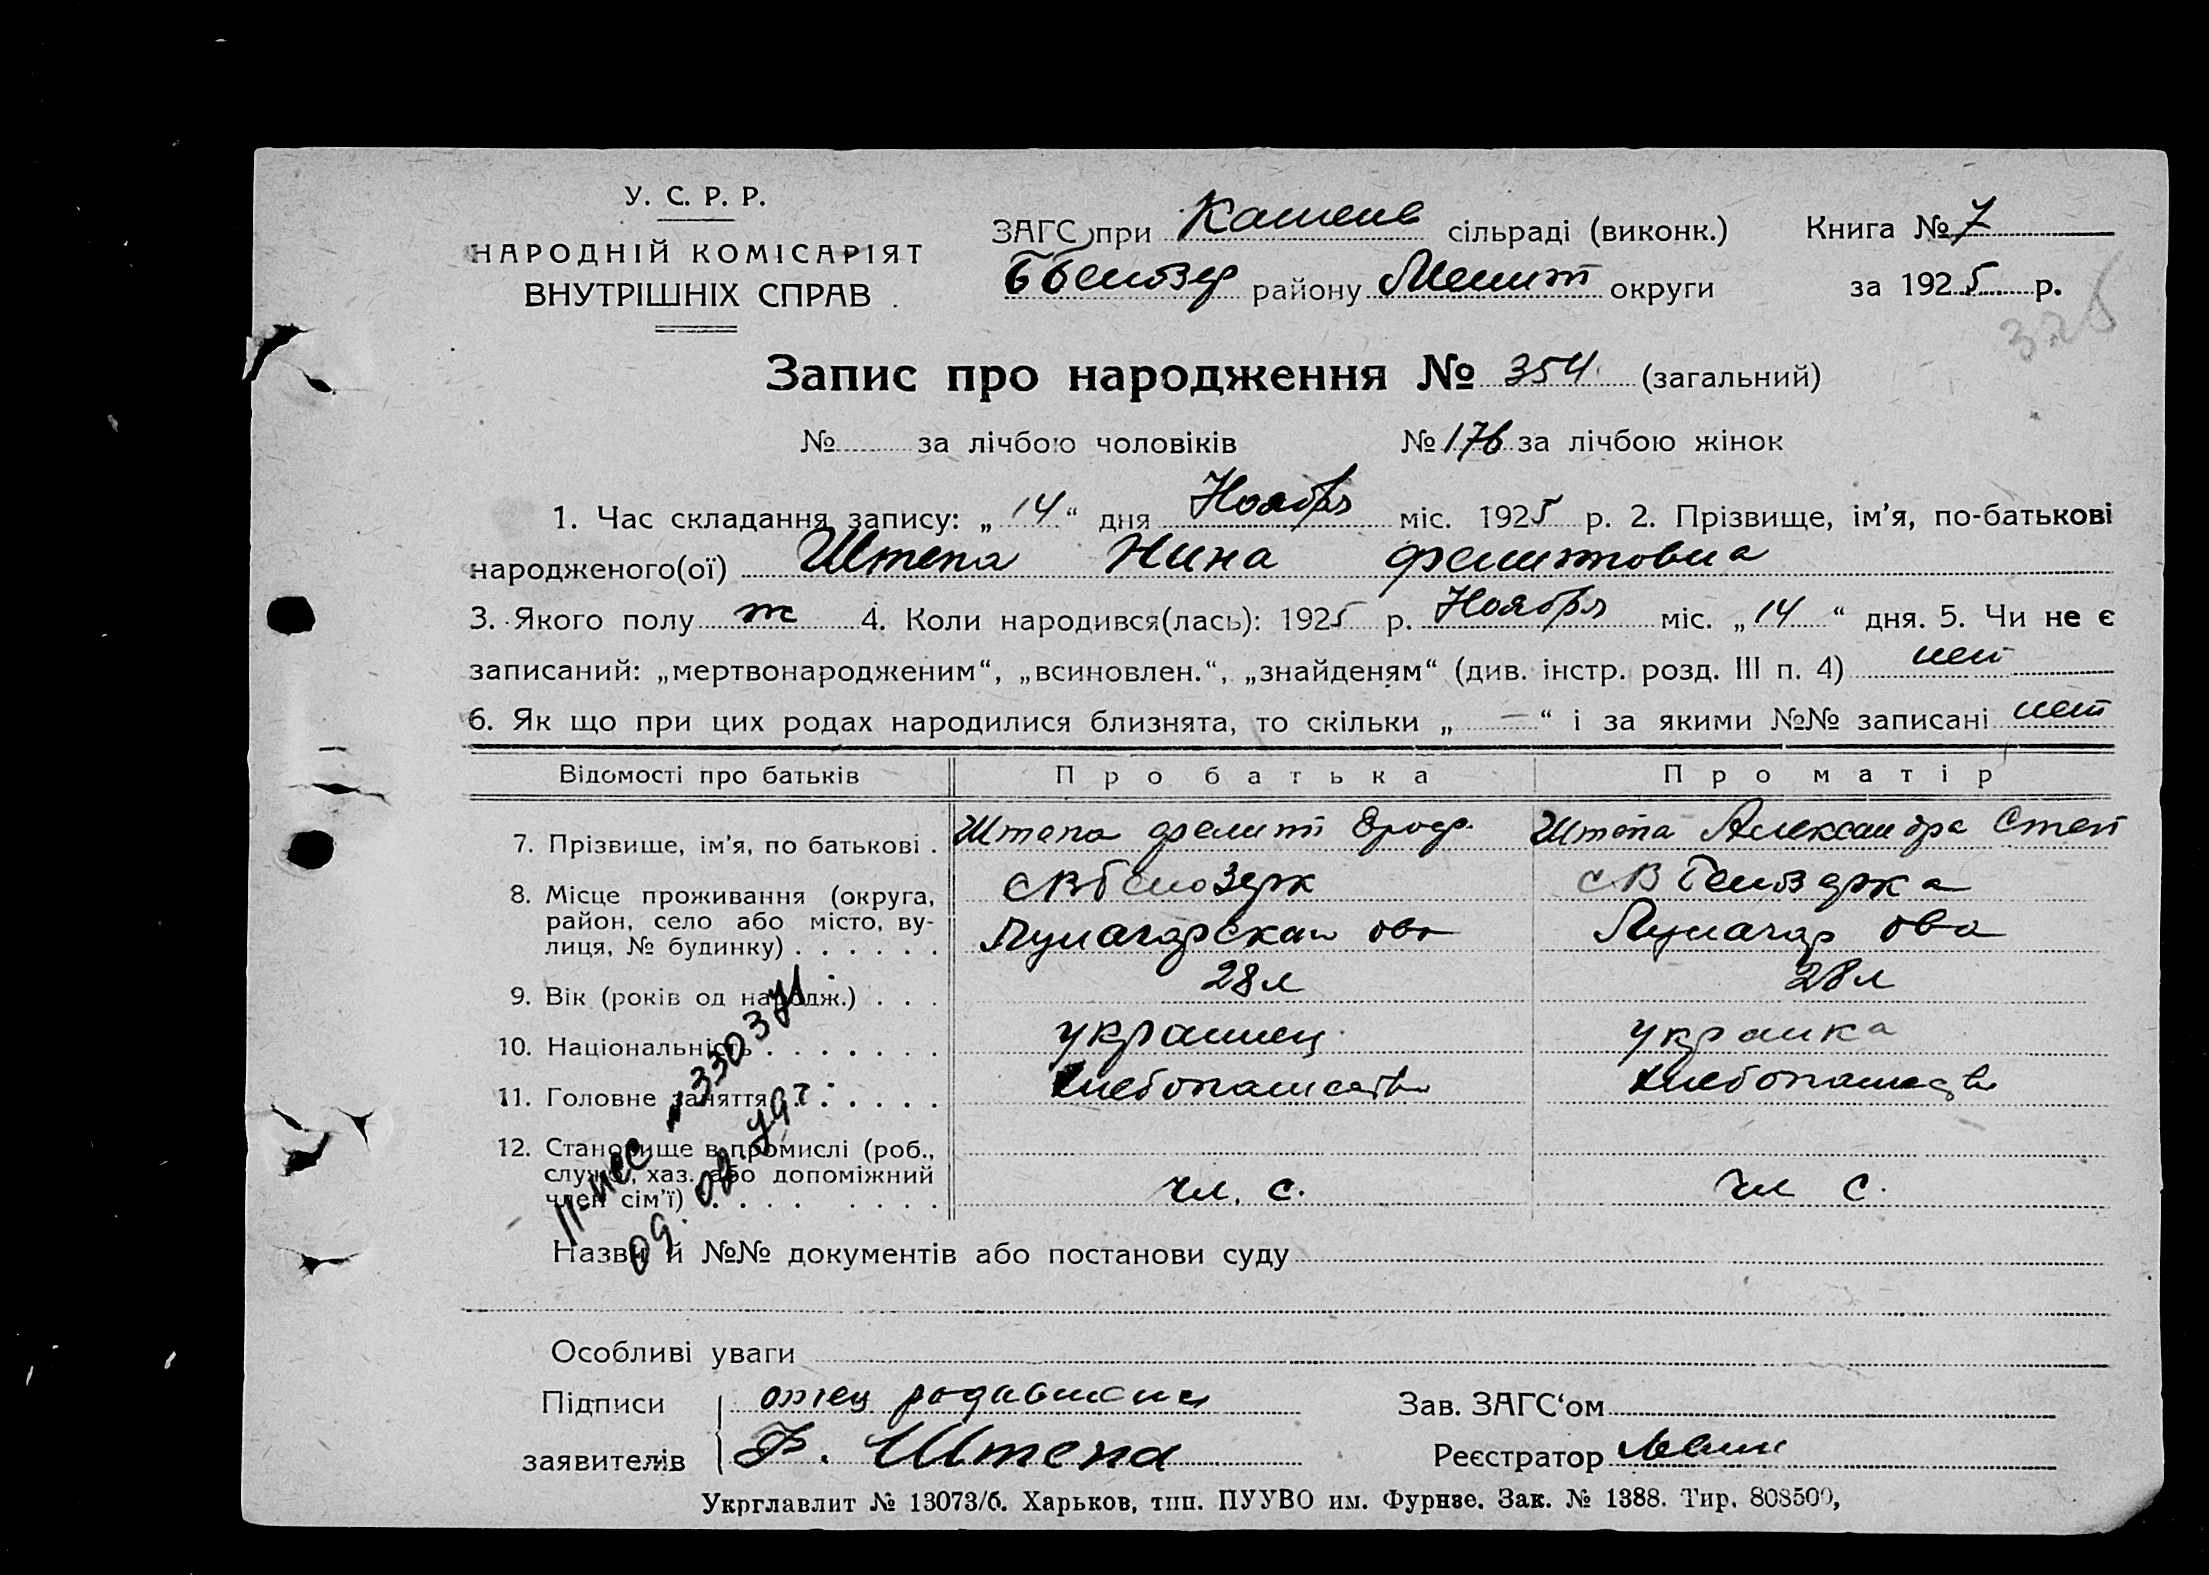 У. С. Р. Р.
НАРОДНІЙ КОМІСАРІЯТ
ВНУТРІШНІХ СПРАВ
ЗАГС при Каменв сільраді (виконк.) Книга № 7
району Мелит округи за 1925 р.
326
Запис про народження № 354 (загальний)
№ за лічбою чоловіків № 176 за лічбою жінок
1. Час складання запису: „14“ дня Ноября міс. 1925 р. 2. Прізвище, ім'я, по-батькові
народженого(ої) Штепа Нина Фелитовна
3. Якого полу ж 4. Коли народився(лась): 1925 р. Ноября міс. „14“ дня. 5. Чи не є
записаний: „мертвонародженим“, „всиновлен.“, „знайденям“ (див. інстр. розд. III п. 4) нет
6. Як що при цих родах народилися близнята, то скільки „—“ і за якими №№ записані нет
Відомості про батьків Про батька Про матір
7. Прізвище, ім'я, по батькові . Штепа Фелит Ероф. Штепа Александра Степ
8. Місце проживання (округа,
район, село або місто, ву-
лиця, № будинку) . . . . . .
9. Вік (років од народж.) . . . 28л 28л
10. Національність . . . . . . . украинец украинка
11. Головне заняття . . . . . . хлебопашество хлебопашество
12. Становище в промислі (роб.,
служ., хаз. або допоміжний
член сім'ї) . . . . . . . . чл. с. чл с.
Назви й №№ документів або постанови суду
Особливі уваги
Підписи отец Зав. ЗАГС'ом
заявителів Ф. Штепа Реєстратор
Укрглавлит № 13073/б. Харьков, тип. ПУУВО им. Фурнзе. Зак. № 1388. Тир. 808500,